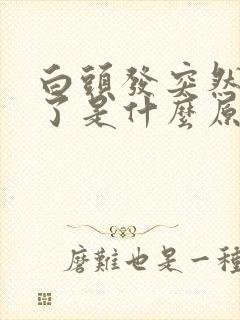 白頭發突然
了是什麼原
磨難也是一種